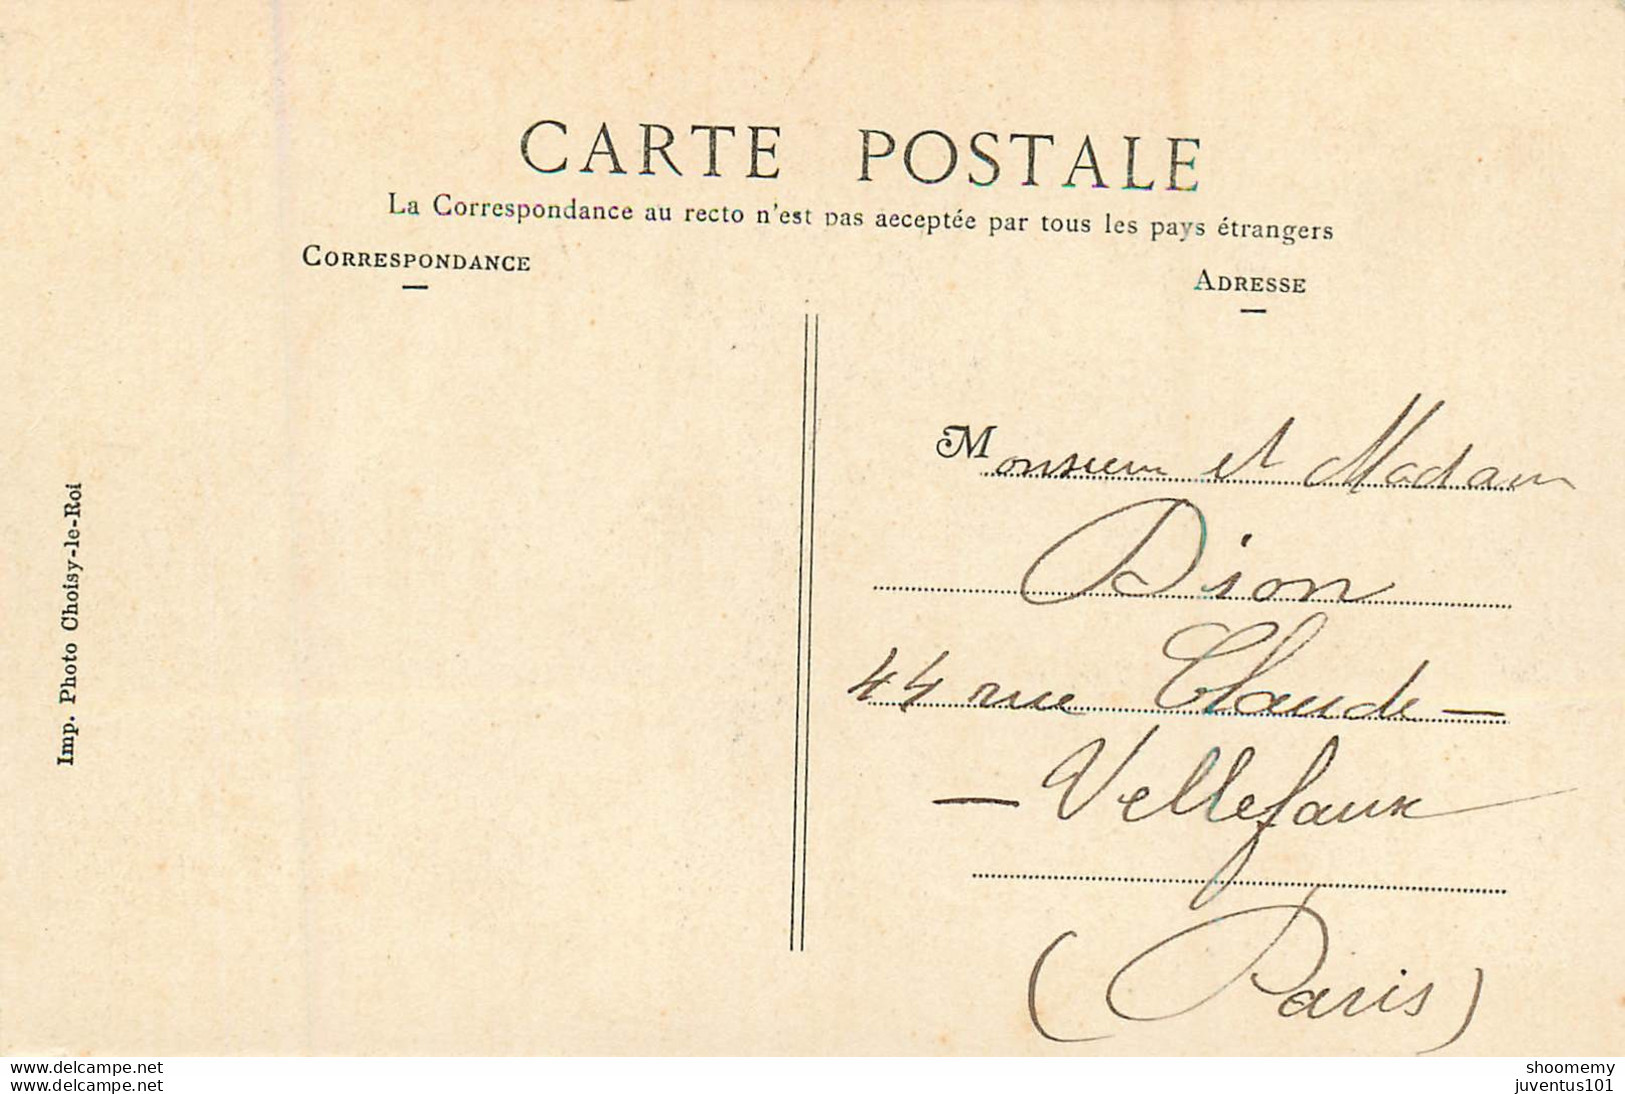 CARTE POSTALE
La Correspondance au recto n'est pas aeceptée par tous les pays étrangers
CORRESPONDANCE
ADRESSE
Monsieur et Madam
Dion
44 rue Claude -
- Vellefaux
(Paris)
Imp. Photo Choisy-le-Roi
https://www.delcampe.net
https://www.delcampe.net
shoomemy
juventus101